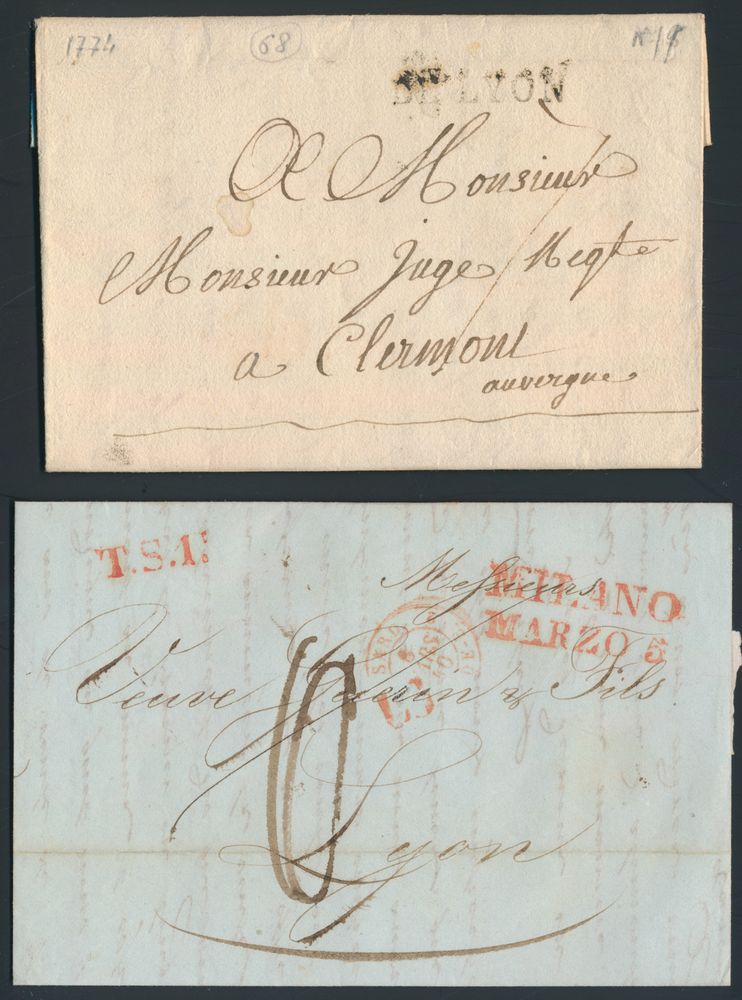 1774 68 N 18
DE LYON
A Monsieur
Monsieur Juge Negte
a Clermont
auvergne
T.S.1.
Messieurs
MILANO
MARZO 5
Veuve Guerin & Fils
Lyon